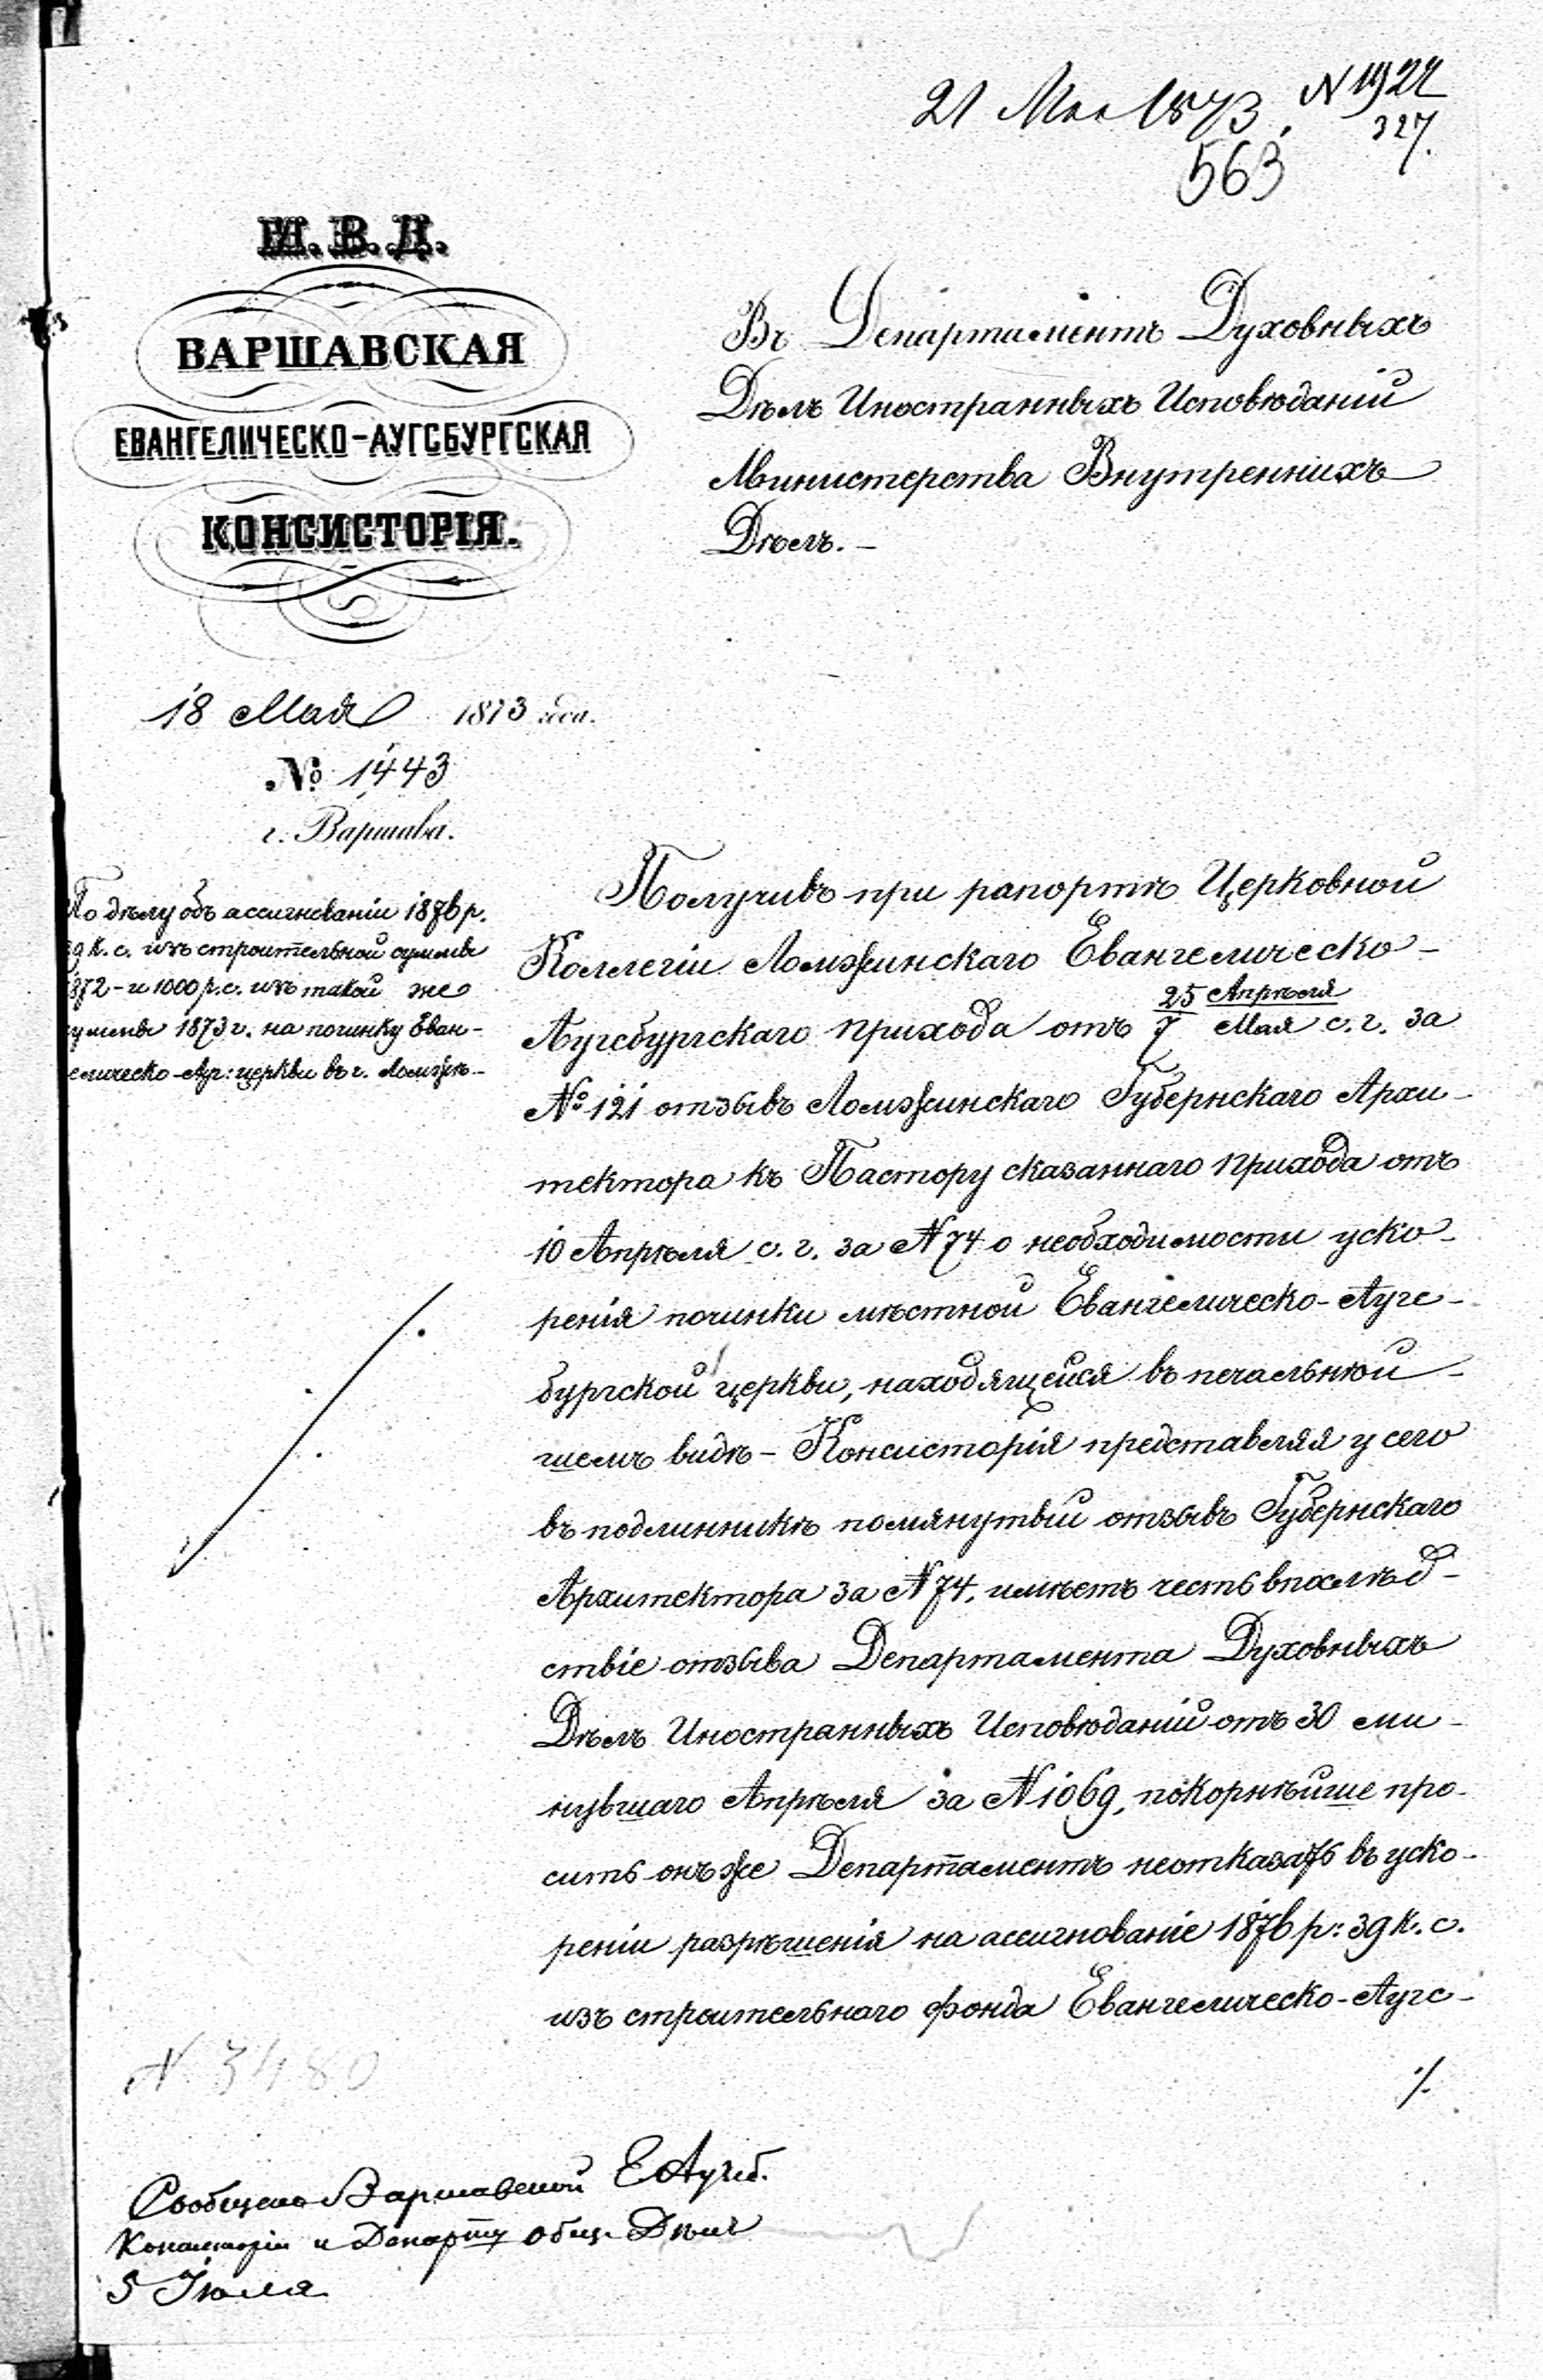 21 Мая 1873. N 1922
327.
563
М. В. Д.
ВАРШАВСКАЯ
ЕВАНГЕЛИЧЕСКО-АУГСБУРГСКАЯ
КОНСИСТОРІЯ.
18 Мая 1873 года.
№ 1443
г. Варшава.
По дѣлу объ ассигнованіи 1876 р.
39 к. с. изъ строительной суммы
1872 - и 1000 р. с. изъ такой же
суммы 1873 г. на починку Еван-
гелическо-Ауг: церкви въ г. Ломжѣ.-
Въ Департаментъ Духовныхъ
Дѣлъ Иностранныхъ Исповѣданій
Министерства Внутреннихъ
Дѣлъ. -
Получивъ при рапортѣ Церковной
Коллегіи Ломжинскаго Евангелическо-
Аугсбургскаго прихода отъ 25 Апрѣля / 7 Мая с. г. за
№ 121 отзывъ Ломжинскаго Губернскаго Архи-
тектора къ Пастору сказаннаго прихода отъ
10 Апрѣля с. г. за N 74 о необходимости уско-
ренія починки мѣстной Евангелическо-Аугс-
бургской церкви, находящейся въ печальнѣй-
шемъ видѣ - Консисторія представляя у сего
въ подлинникѣ помянутый отзывъ Губернскаго
Архитектора за N 74, имѣетъ честь впослѣд-
ствіе отзыва Департамента Духовныхъ
Дѣлъ Иностранныхъ Исповѣданій отъ 30 ми-
нувшаго Апрѣля за N 1069, покорнѣйше про-
сить онъ же Департаментъ неотказать въ уско-
реніи разрѣшенія на ассигнованіе 1876 р: 39 к. с.
изъ строительнаго фонда Евангелическо-Аугс-
./.
N 3480
Сообщено Варшавской Е Аугсб.
Консисторіи и Департу общ. Дѣлъ
5 Іюля